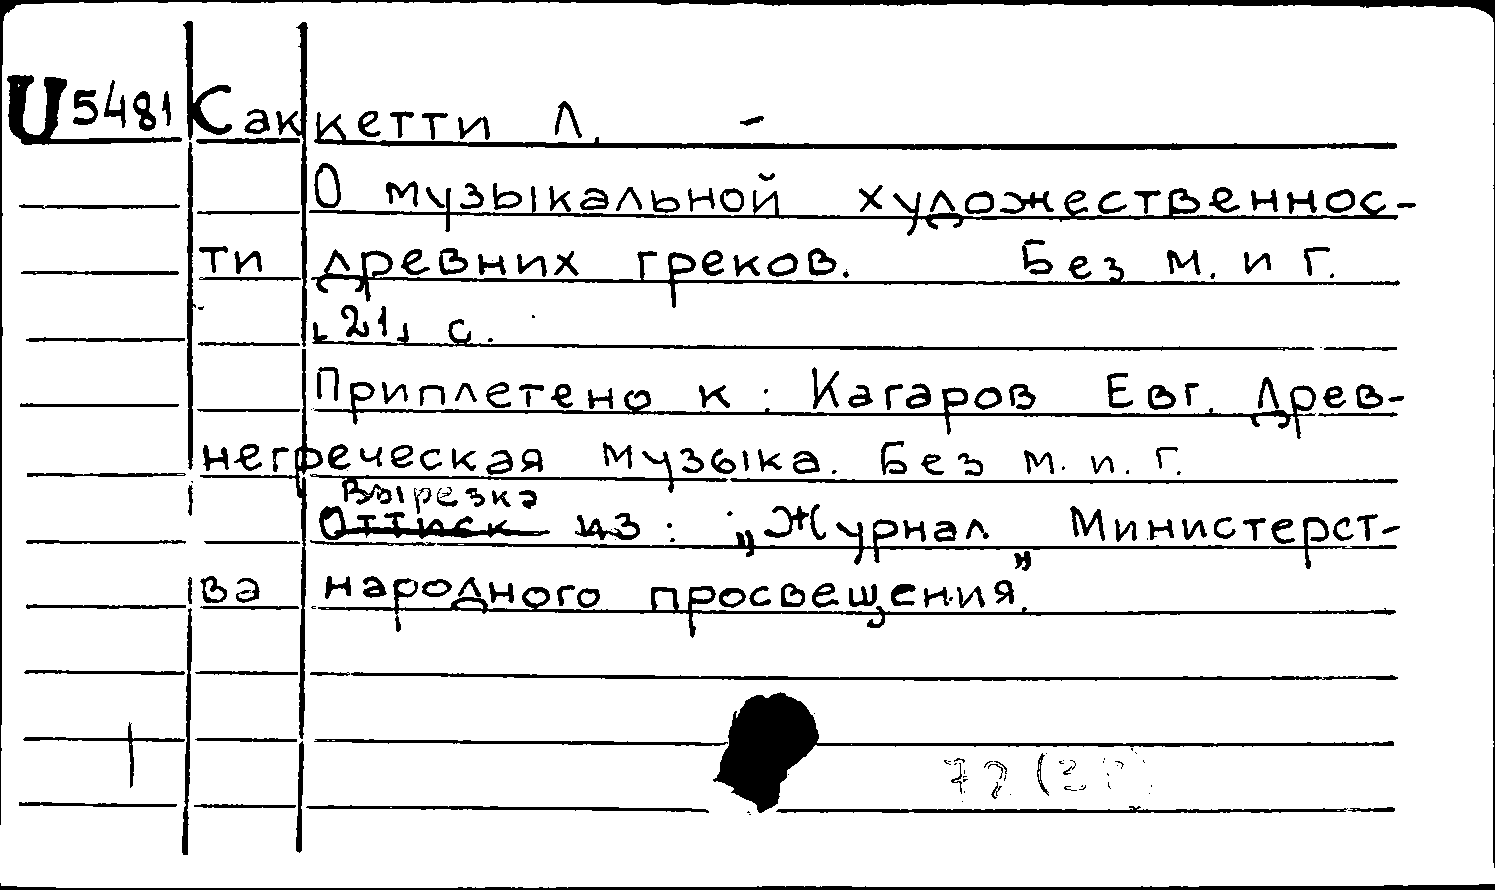 U5481 Саккетти Л. -
О музыкальной художественнос-
ти древних греков. Без м. и г.
[21] с.
Приплетено к: Кагаров Евг. Древ-
негреческая музыка. Без м. и. г.
Вырезка
Оттиск из: „Журнал Министерст-
ва народного просвещения.”